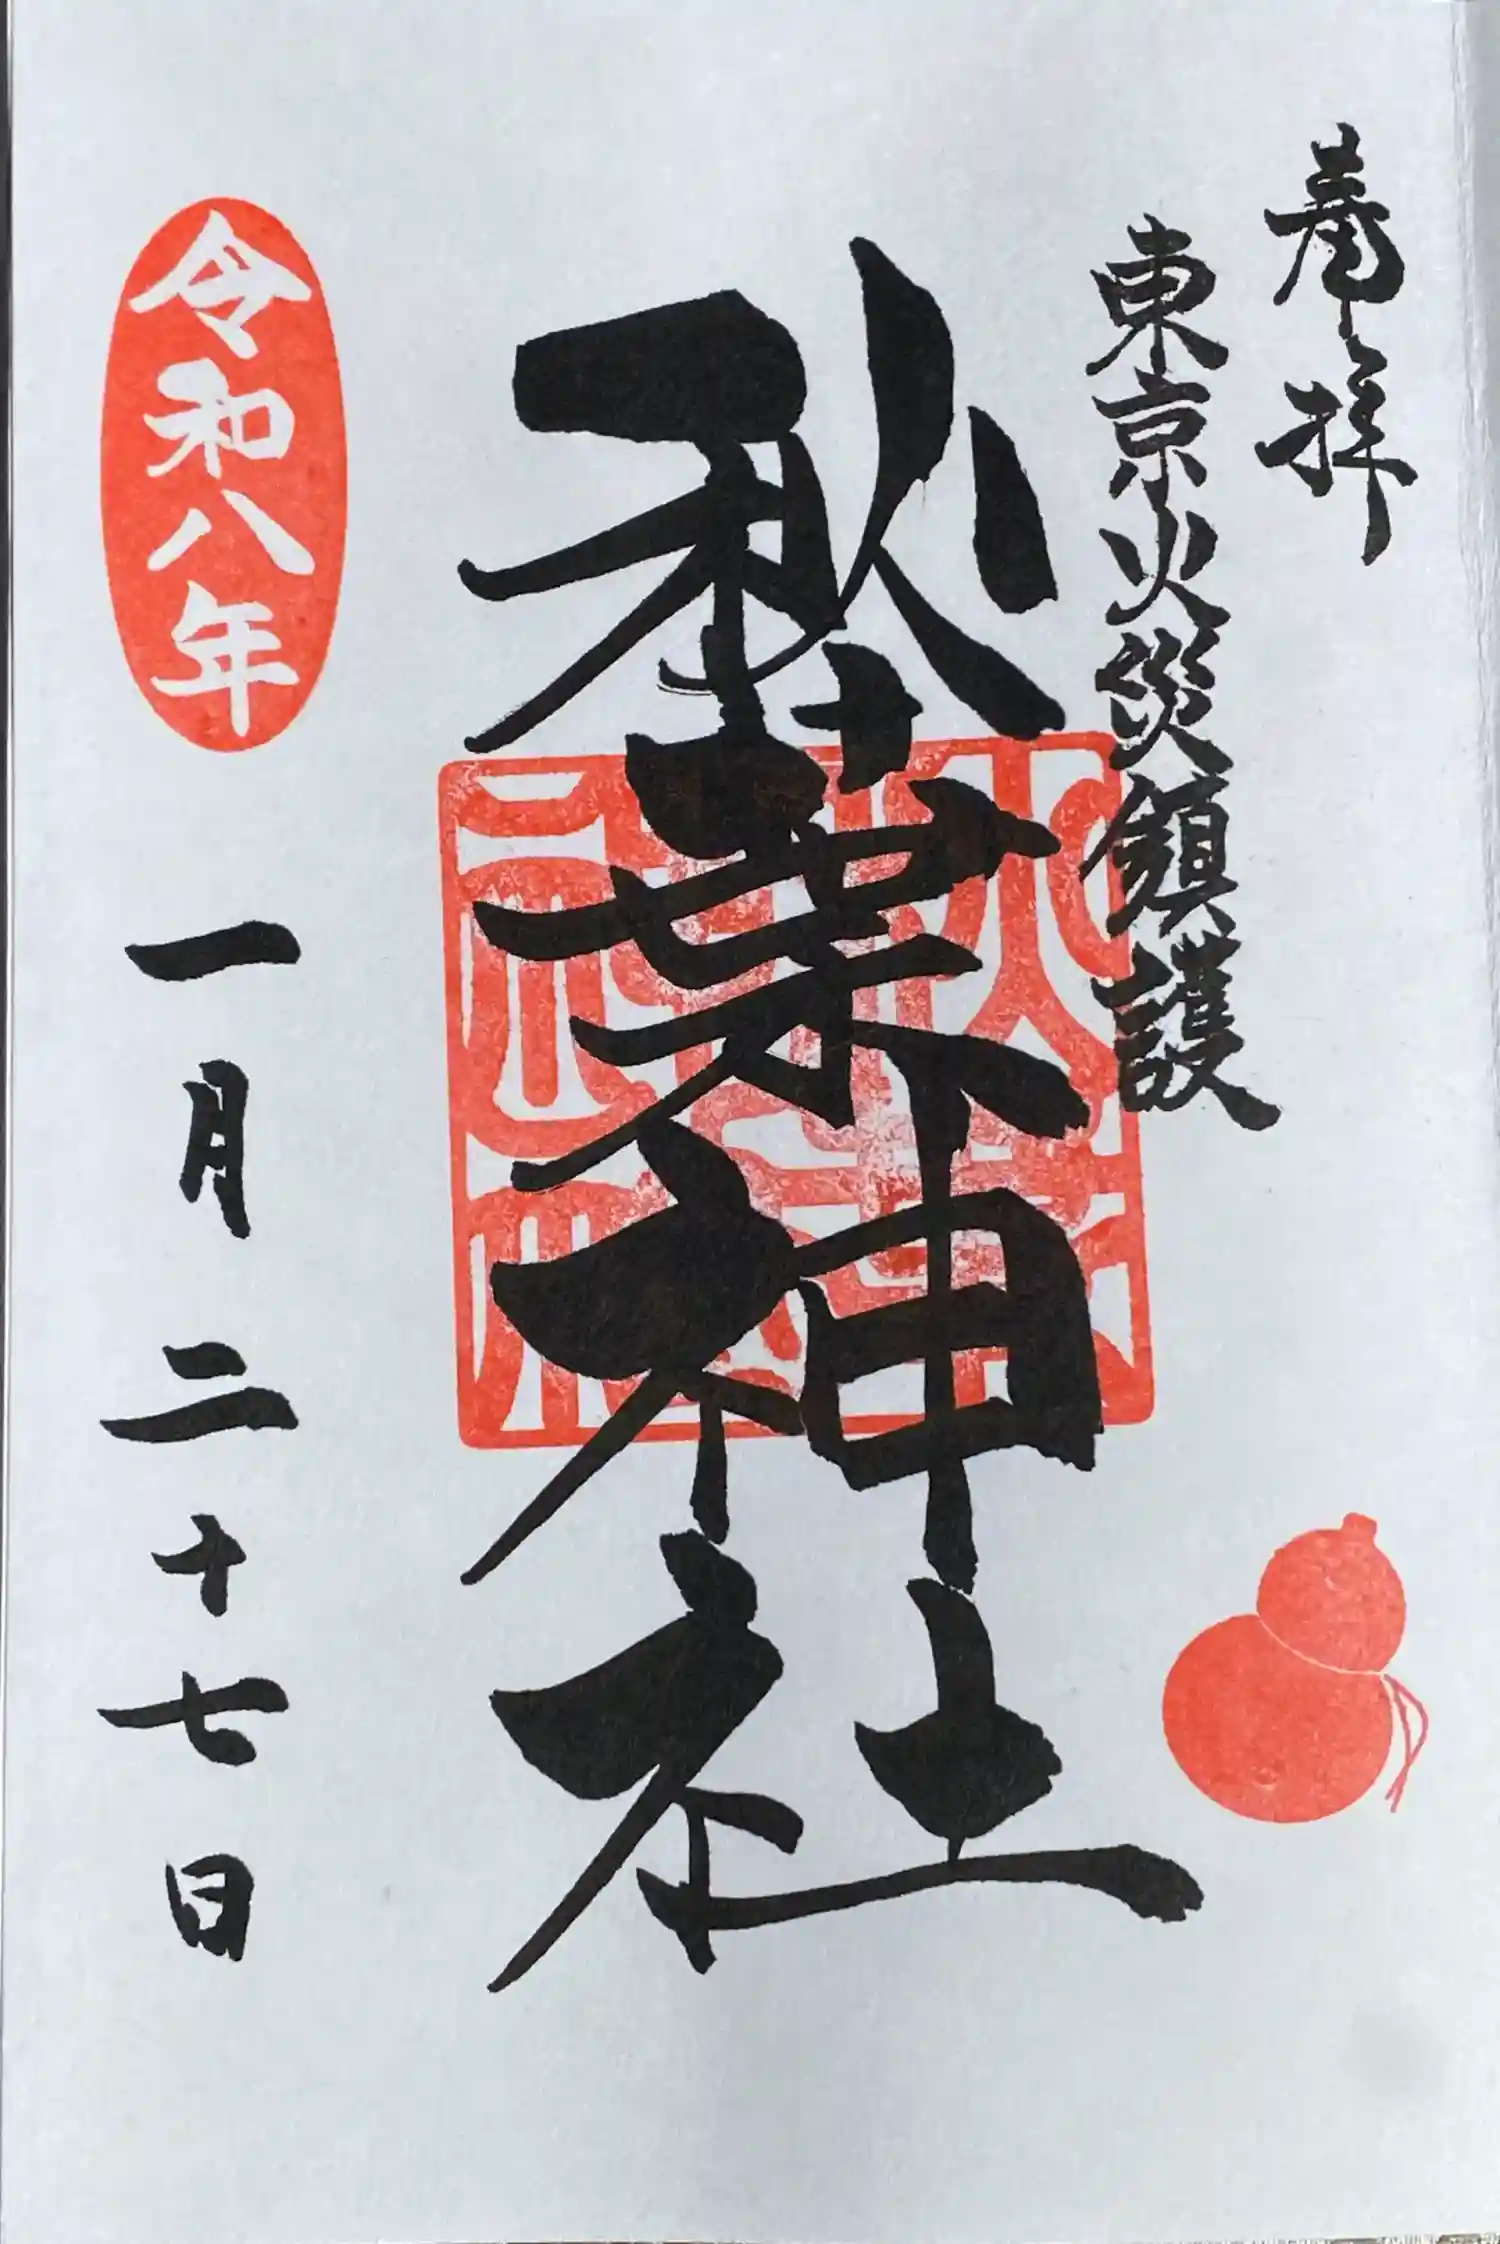 奉拝
東京火災鎮護
秋葉神社
令和八年
一月二十七日